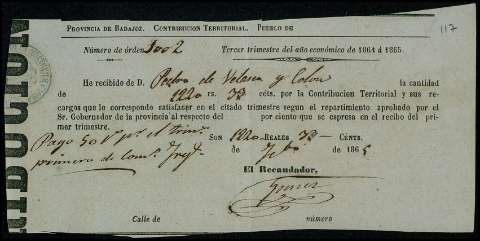 117
PROVINCIA DE BADAJOZ. CONTRIBUCION TERRITORIAL. PUEBLO DE
Número de órden 3002 Tercer trimestre del año económico de 1864 á 1865.
He recibido de D. Pedro de Velasco y Colon la cantidad
de 1220 rs. 38 cénts. por la Contribucion Territorial y sus re-
cargos que le corresponde satisfacer en el citado trimestre segun el repartimiento aprobado por el
Sr. Gobernador de la provincia al respecto del por ciento que se espresa en el recibo del pri-
mer trimestre.
Pago 50 el trim.
primero de
SON 1220 REALES 38 CÉNTS.
de Feb. de 1865
El Recaudador,
Gomez
Calle de número